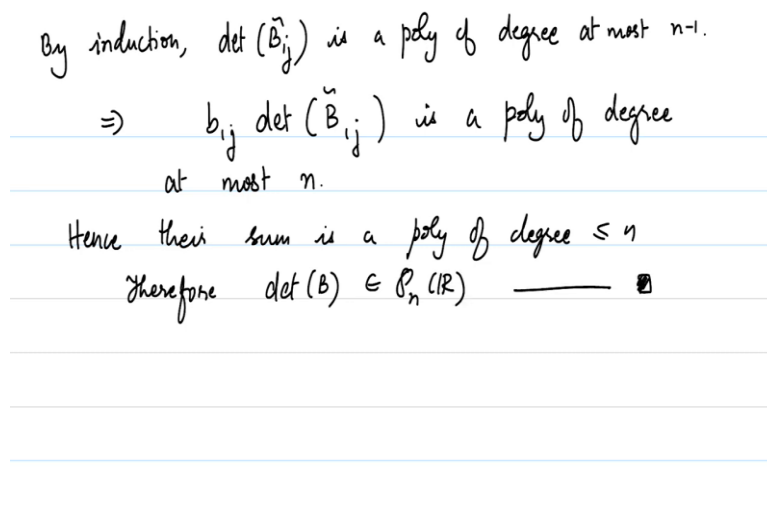 By induction, det (B̃ᵢⱼ) is a poly of degree at most n-1.
⇒ b₁ⱼ det (B̃₁ⱼ) is a poly of degree
at most n.
Hence their sum is a poly of degree ≤ n
Therefore det (B) ∈ Pₙ (ℝ) ——— ∎